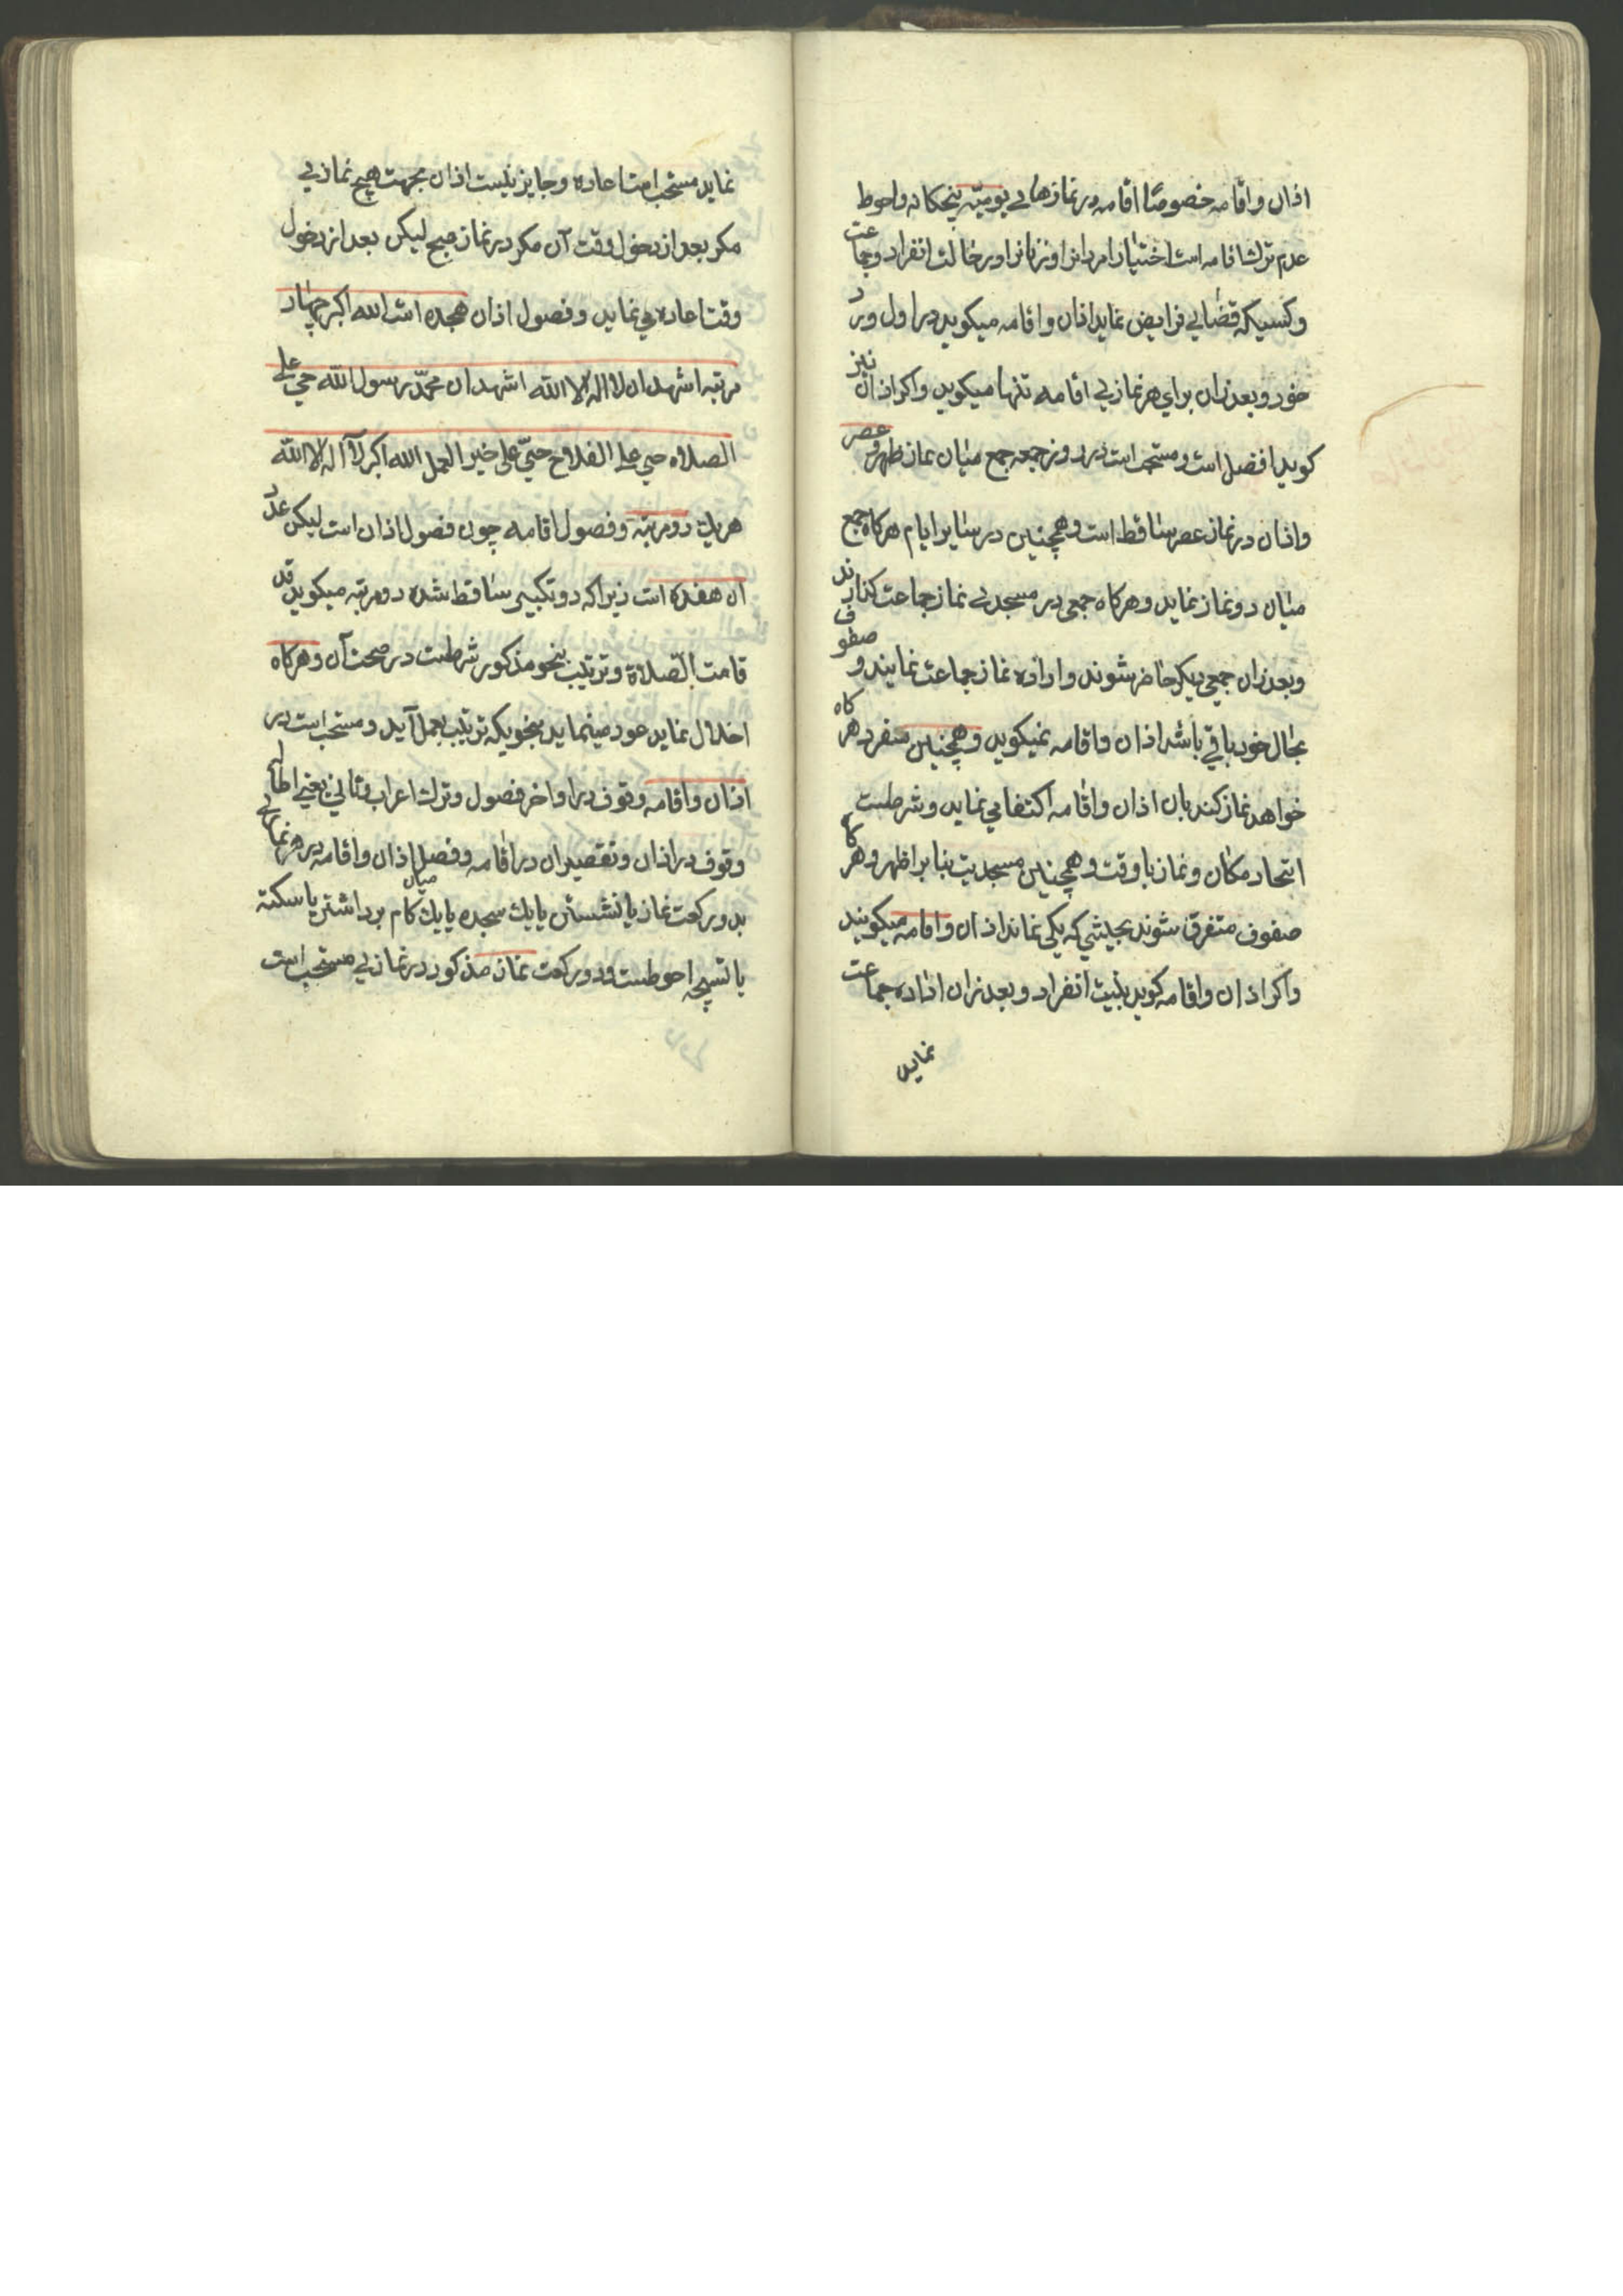 اذان واقامه خصوصًا اقامه در نمازهای یومیّه پنجکانه واحوط
عدم ترك اقامه است اختیارا مردانرا وزنانرا در حالت انفراد وجماعت
وکسیکه قضایی فرایض نماید اذان واقامه میکوید در اول ورد
خود وبعد زان برای هر نمازی اقامه تنها میکوید واکر اذان نیز
کوید افضل است ومستحب است در روز جمعه جمع میان نماز ظهر وعصر
واذان در نماز عصر ساقط است وهمچنین در سایر ایام هرکاه جمع
میان دو نماز نماید وهرکاه جمعی در مسجدی نماز جماعت کذارند
وبعد زان جمعی دیکر حاضر شوند واراده نماز جماعت نمایند وصفوف
بحال خود باقی باشد اذان واقامه نمیکوید وهمچنین منفرد هرکاه
خواهد نماز کند بان اذان واقامه اکتفا می نماید وشرطست
اتحاد مکان ونماز با وقت وهمچنین مسجدیت بنابر اظهر وهرکاه
صفوف متفرق شوند بحیثی که یکی نماند اذان واقامه میکویند
واکر اذان واقامه کوید بنیت انفراد وبعد زان اراده جماعت
نماید
نماید مستحب است اعاده وجایز نیست اذان بجهت هیچ نمازی
مکر بعد از دخول وقت آن مکر در نماز صبح لیکن بعد از دخول
وقت اعاده می نماید وفصول اذان هجده است الله اکبر چهار
مرتبه اشهد ان لا اله الا الله اشهد ان محمّد رسول الله حی علی
الصلاه حی علی الفلاح حیّ علی خیر العمل الله اکبر لا اله الا الله
هریك دو مرتبه وفصول اقامه چون فصول اذان است لیکن عدد
ان هفده است زیراکه دو تکبیر ساقط شده دو مرتبه میکوید قد
قامت الصّلاة وترتیب بنحو مذکور شرطست در صحت آن وهرکاه
اخلال نماید عود مینماید بنحویکه ترتیب بعمل آید ومستحب است در
اذان واقامه وقوف در اواخر فصول وترك اعراب وتانی یعنی اطاله
وقوف در اذان وتقصیر ان در اقامه وفصل میان اذان واقامه در هر نمازی
بدو رکعت نماز یا نشستن یا یك سجده یا یك کام برداشتن یا سکته
یا تسبیحه احوطست ودو رکعت نماز مذکور در نمازی مستحب است